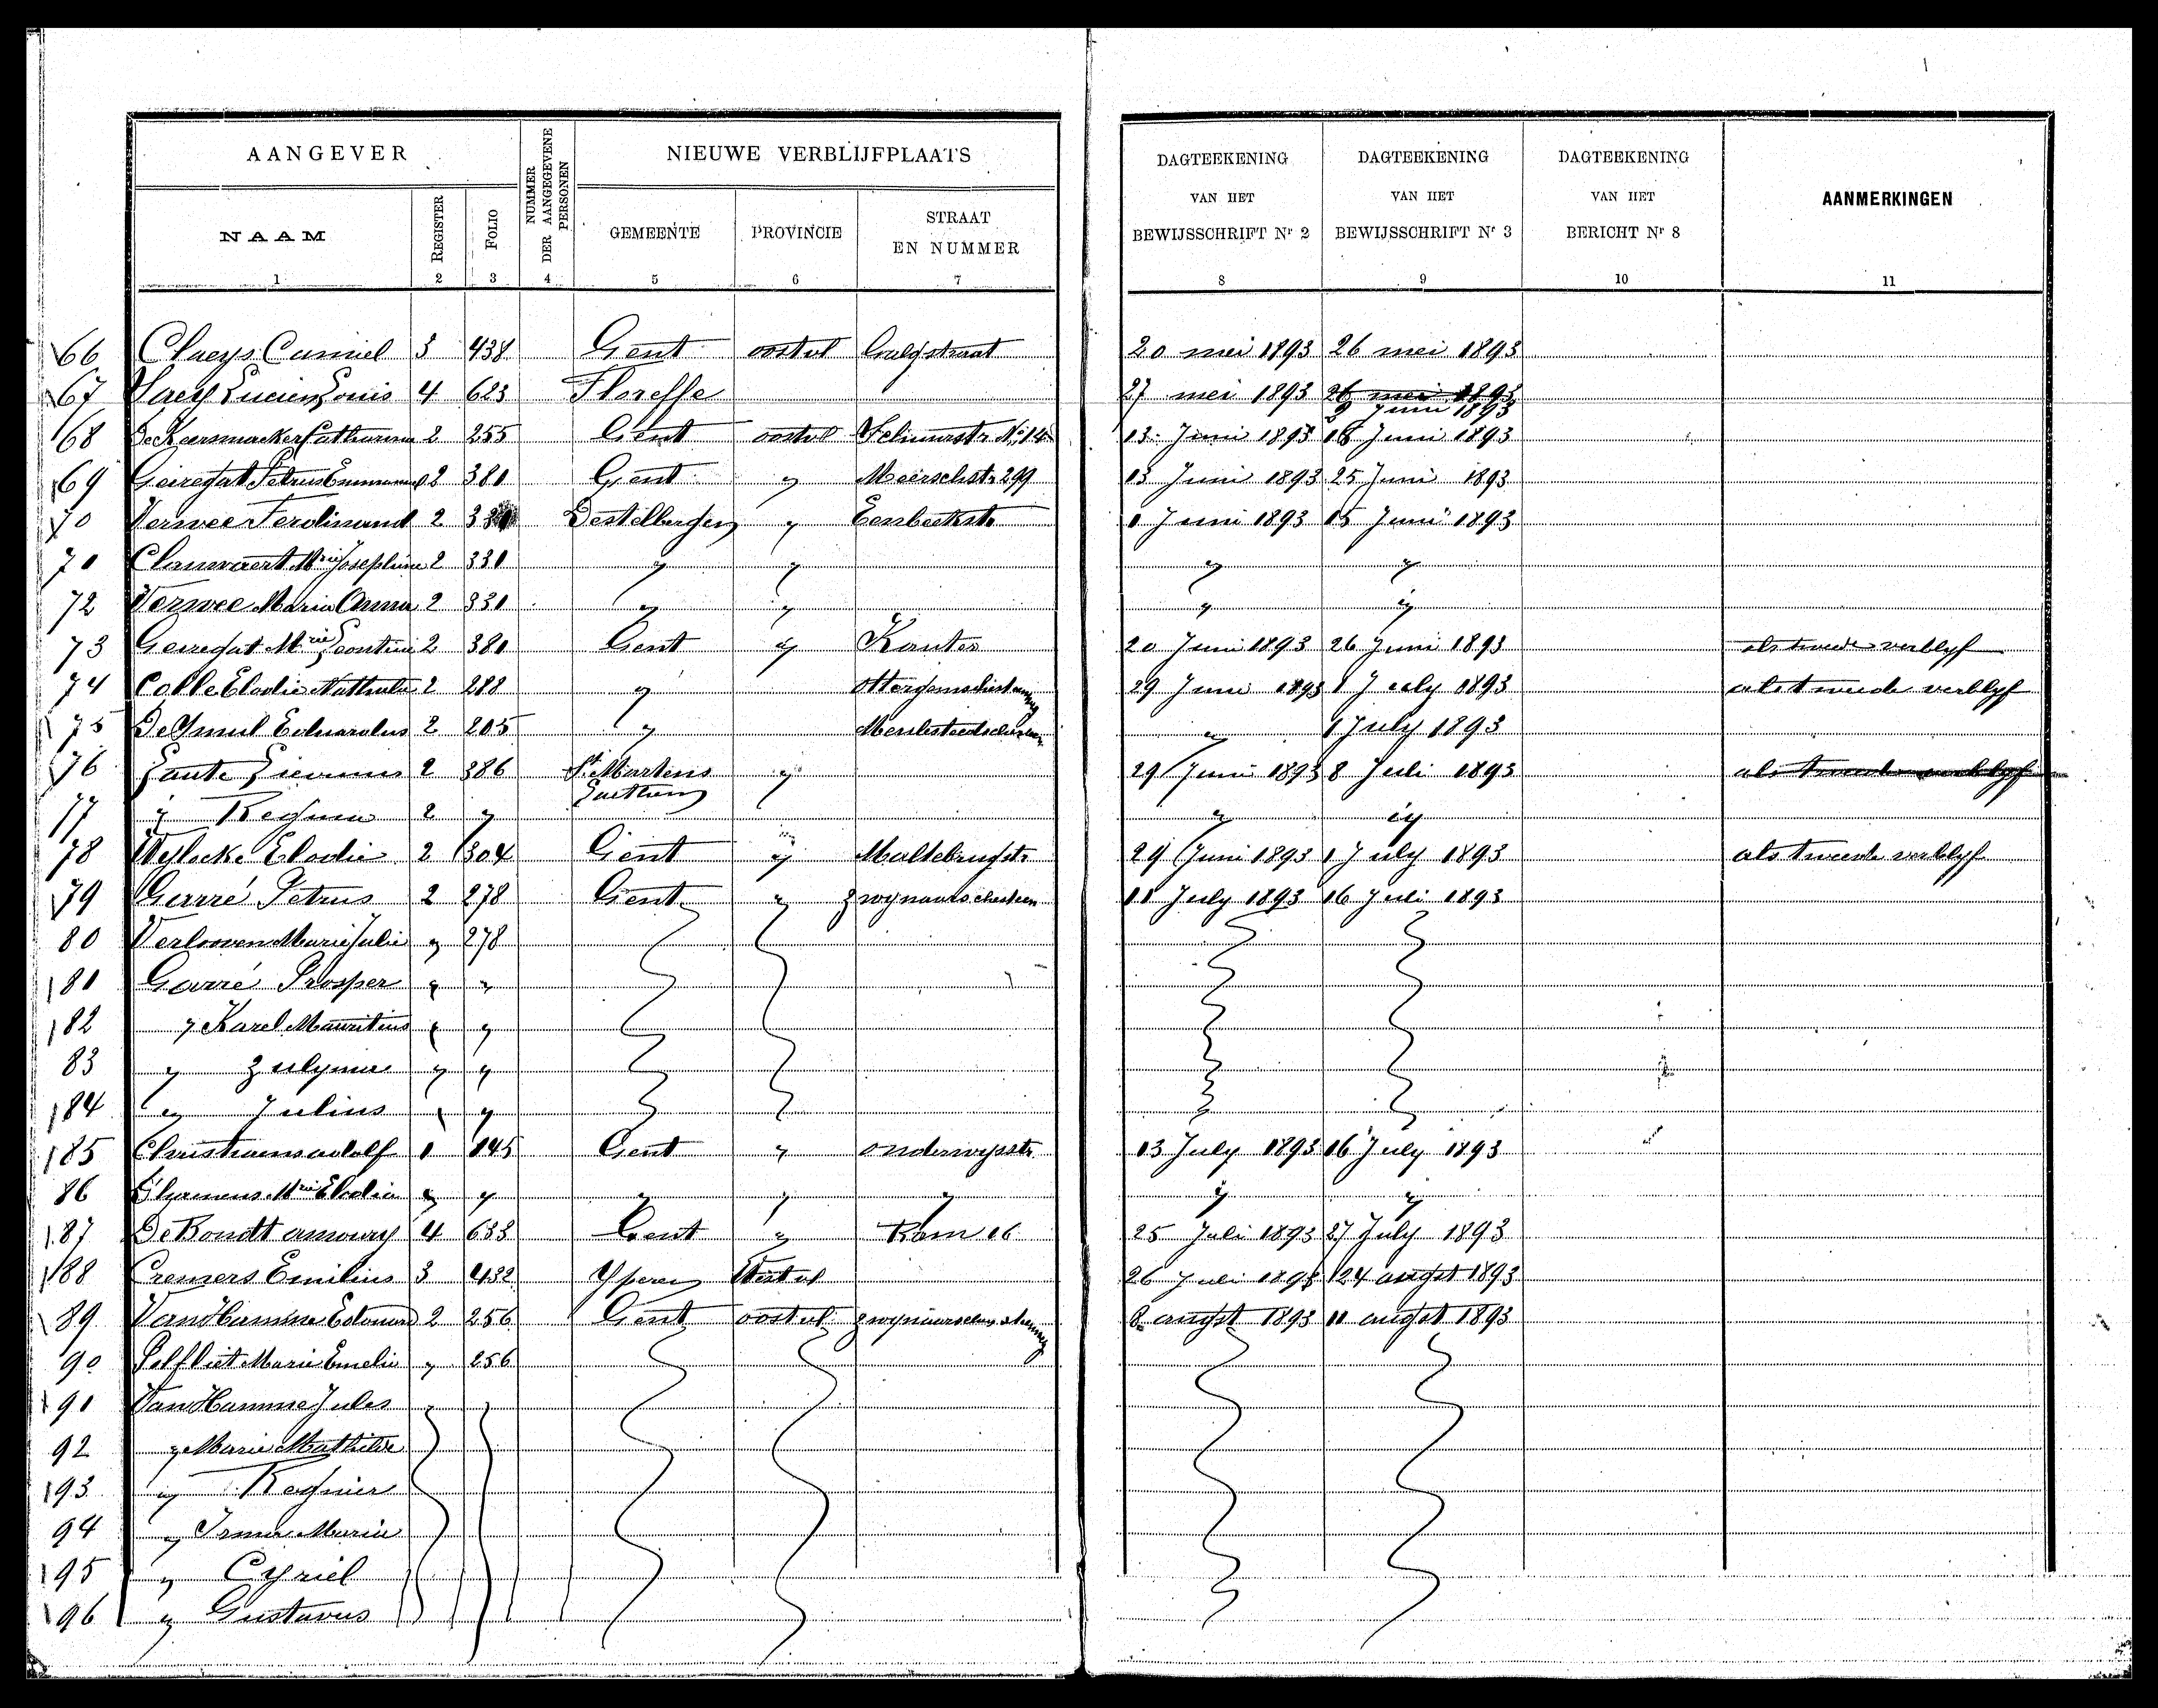 AANGEVER
NUMMER DER AANGEGEVENE PERSONEN
NIEUWE VERBLIJFPLAATS
DAGTEEKENING VAN HET BEWIJSSCHRIFT Nr 2
DAGTEEKENING VAN HET BEWIJSSCHRIFT Nr 3
DAGTEEKENING VAN HET BERICHT Nr 8
AANMERKINGEN
NAAM REGISTER FOLIO GEMEENTE PROVINCIE STRAAT EN NUMMER
1 2 3 4 5 6 7 8 9 10 11
66 Claeys Camiel 3 438 Gent oostvl 20 mei 1893 26 mei 1893
67 Lucien Louis 4 623 Floreffe 27 mei 1893 26 mei 1893
9 Juni 1893
68 De Keersmaeker 2 255 Gent oostvl No 14 13 Juni 1893 18 Juni 1893
69 Geiregat Petrus 2 380 Gent " Meerschstr 299 13 Juni 1893 25 Juni 1893
70 Verwee Ferdinand 2 Destelbergen " Eenbeekstr 1 Juni 1893 15 Juni 1893
70 Clauwaert Mrie Josephine 2 330 " " " "
72 Verwee Maria Anna 2 330 " " " "
73 Geiregat Mrie Leontine 2 380 Gent " Kanter 20 Juni 1893 26 Juni 1893 als tweede verblyf
74 Colle Elodie Nathalie 2 288 " 29 Juni 1893 1 July 1893 als tweede verblyf
75 Eduardus 2 205 " " 1 July 1893
76 Lievinus 2 386 St Martens " 29 Juni 1893 8 Juli 1893 als tweede verblyf
77 " Regina 2 " Laethem " "
78 Wylocke Elodie 2 304 Gent " Maltebrugstr 29 Juni 1893 1 July 1893 als tweede verblyf
79 Garré Petrus 2 278 Gent " 11 July 1893 16 Juli 1893
80 Verlooven Marie Julie " 278
181 Garré Prosper " "
182 " Karel Mauritius " "
83 " Zulyma " "
184 " Julius " "
185 Christiaens adolf 1 145 Gent " onderwysstr 13 July 1893 16 July 1893
86 Mrie Elodie " " " " " " "
187 De Bondt amoury 4 633 Gent " 16 25 Juli 1893 27 July 1893
188 Cremers Emilius 3 432 Yperen Westvl 26 Juli 1893 24 augst 1893
89 Van Hamme Edouard 2 256 Gent oostvl 8 augst 1893 11 augst 1893
90 Pelfliet Marie Emelie " 256
191 Van Hamme Jules
92 " Marie Mathilde
193 " Regnier
94 " Irma Maria
195 " Cyriel
196 " Gustavus